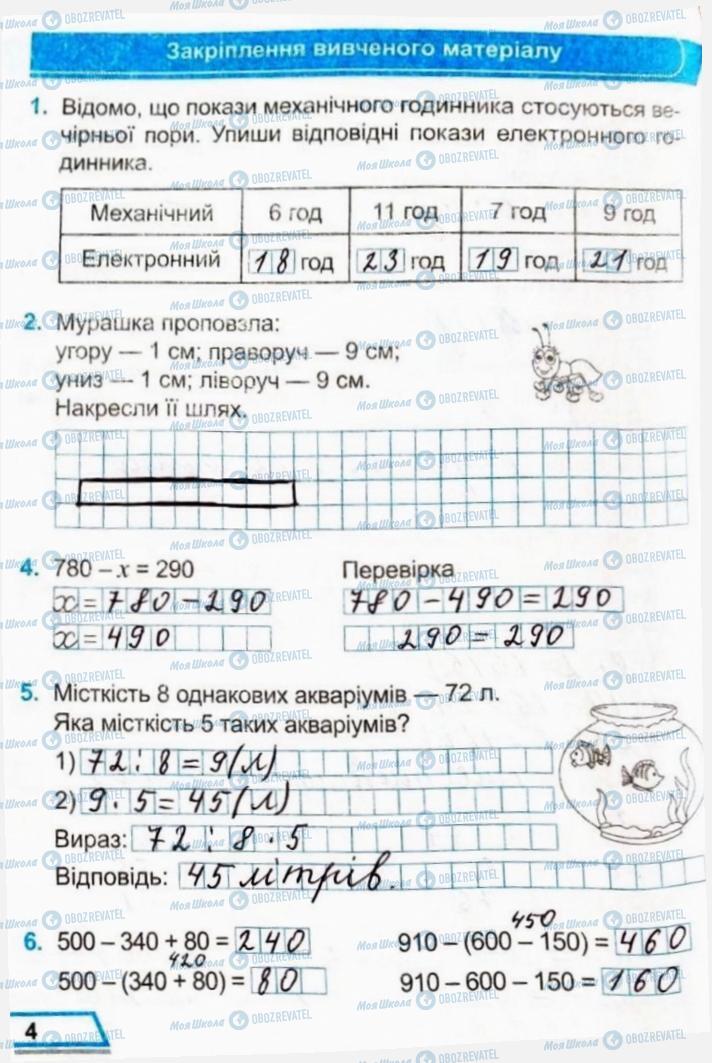 Закріплення вивченого матеріалу
1. Відомо, що покази механічного годинника стосуються ве-
чірньої пори. Упиши відповідні покази електронного го-
динника.
Механічний 6 год 11 год 7 год 9 год
Електронний 18 год 23 год 19 год 21 год
2. Мурашка проповзла:
угору — 1 см; праворуч — 9 см;
униз — 1 см; ліворуч — 9 см.
Накресли її шлях.
4. 780 – x = 290 Перевірка
x = 780 – 290 780 – 490 = 290
x = 490 290 = 290
5. Місткість 8 однакових акваріумів — 72 л.
Яка місткість 5 таких акваріумів?
1) 72 : 8 = 9 (л)
2) 9 · 5 = 45 (л)
Вираз: 72 : 8 · 5
Відповідь: 45 літрів.
450
6. 500 – 340 + 80 = 240 910 – (600 – 150) = 460
420
500 – (340 + 80) = 80 910 – 600 – 150 = 160
4
Моя Школа OBOZREVATEL